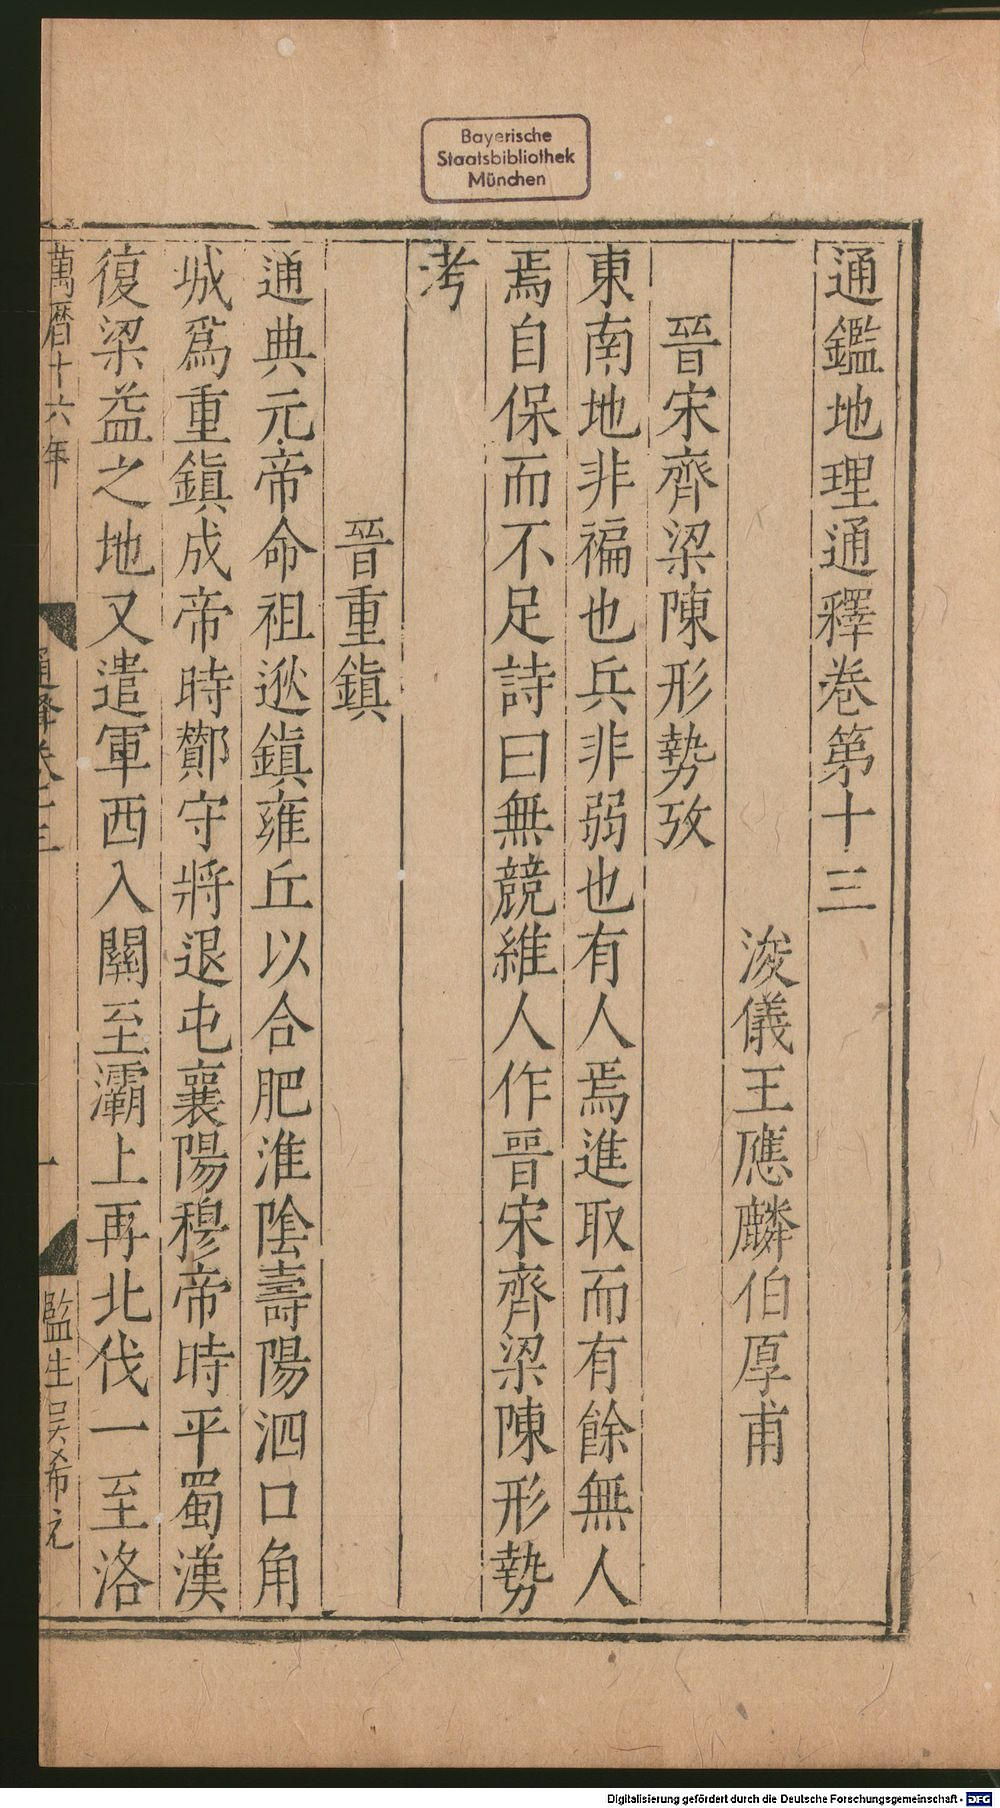 Bayerische
Staatsbibliothek
München
通鑑地理通釋卷第十三
浚儀王應麟伯厚甫
晉宋齊梁陳形勢攷
東南地非褊也兵非弱也有人焉進取而有餘無人
焉自保而不足詩曰無競維人作晉宋齊梁陳形勢
考
晉重鎭
通典元帝命祖逖鎭雍丘以合肥淮陰壽陽泗口角
城爲重鎭成帝時酇守將退屯襄陽穆帝時平蜀漢
復梁益之地又遣軍西入關至灞上再北伐一至洛
萬曆十六年
通釋卷十三
一
監生吳希元
Digitalisierung gefördert durch die Deutsche Forschungsgemeinschaft - DFG